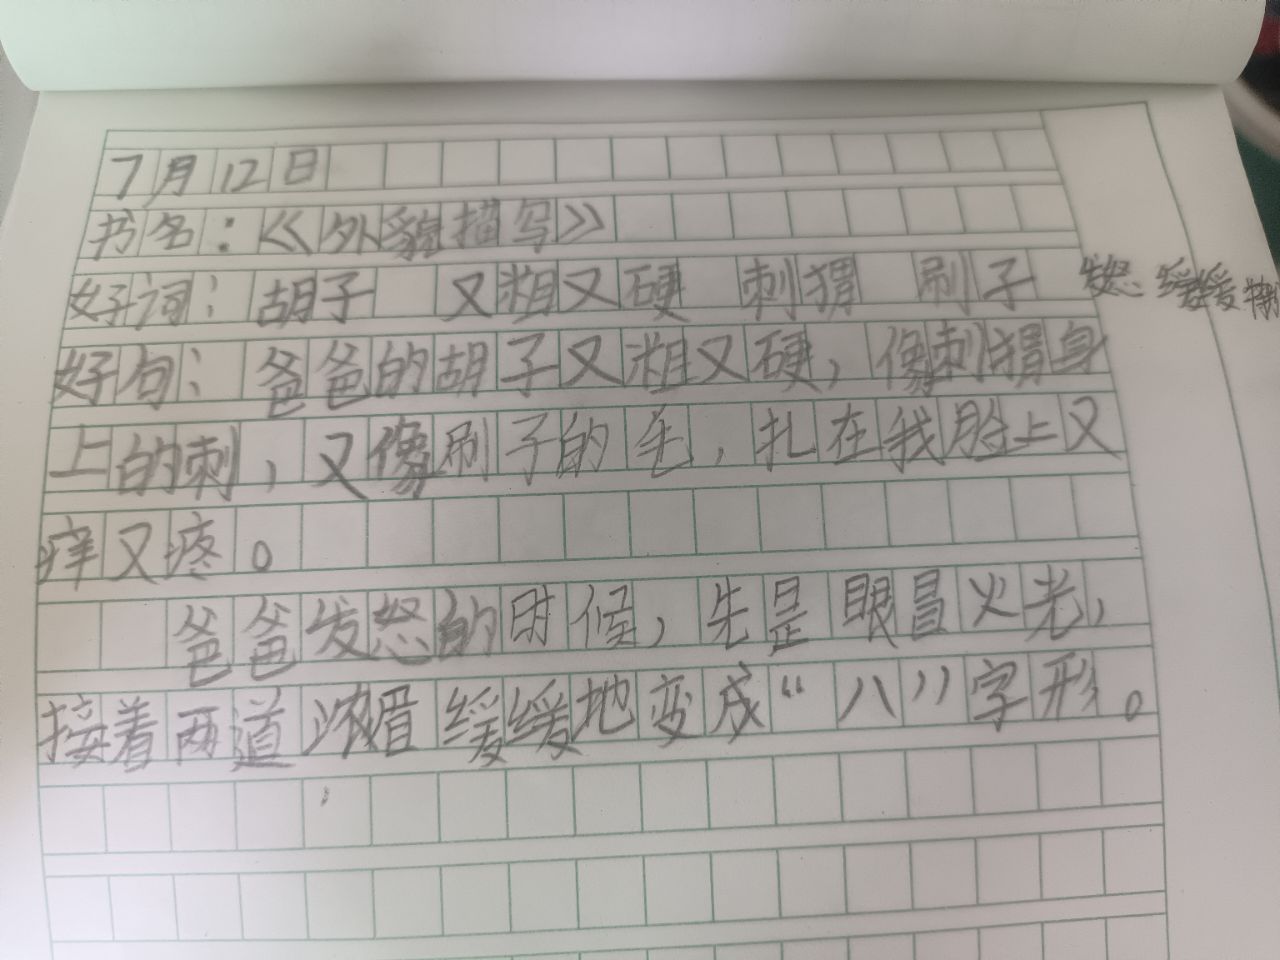 7月12日
书名：《外貌描写》
好词：胡子 又粗又硬 刺猬 刷子 发怒 缓缓
好句：爸爸的胡子又粗又硬，像刺猬身
上的刺，又像刷子的毛，扎在我脸上又
痒又疼。
爸爸发怒的时候，先是眼冒火光，
接着两道浓眉缓缓地变成“八”字形。